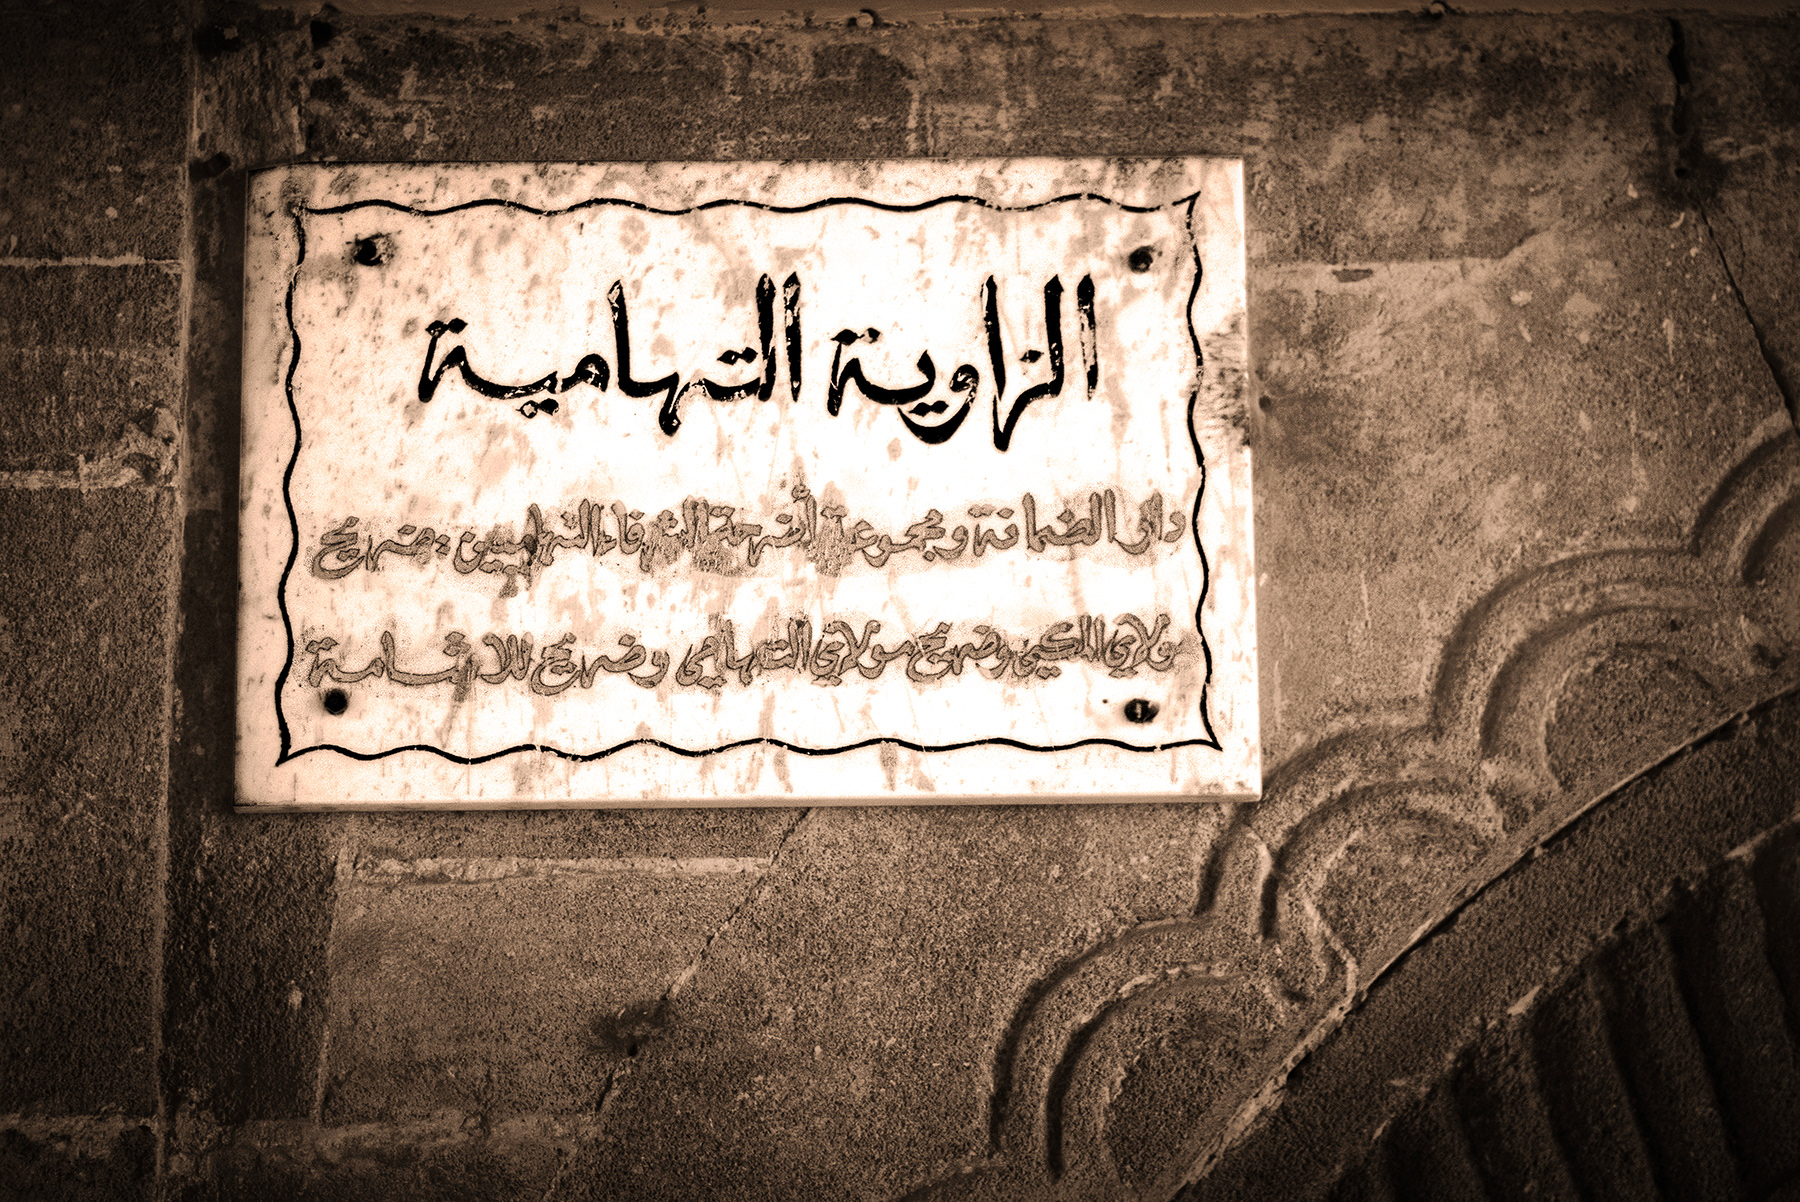 الزاوية التهامية
دار الضمانة ومجموعة أضرحة الشرفاء التهاميين: ضريح
مولاي المكي وضريح مولاي التهامي وضريح للا شامة